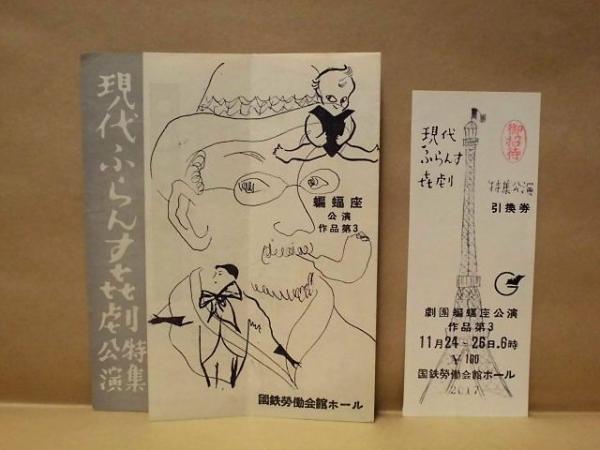 現代ふらんす喜劇特集公演
蝙蝠座
公演
作品第3
國鉄勞働会館ホール
現代
ふらんす
喜劇
御招待
特集公演
引換券
劇團蝙蝠座公演
作品第3
11月24-26日.6時
¥100
国鉄勞働会館ホール
2017